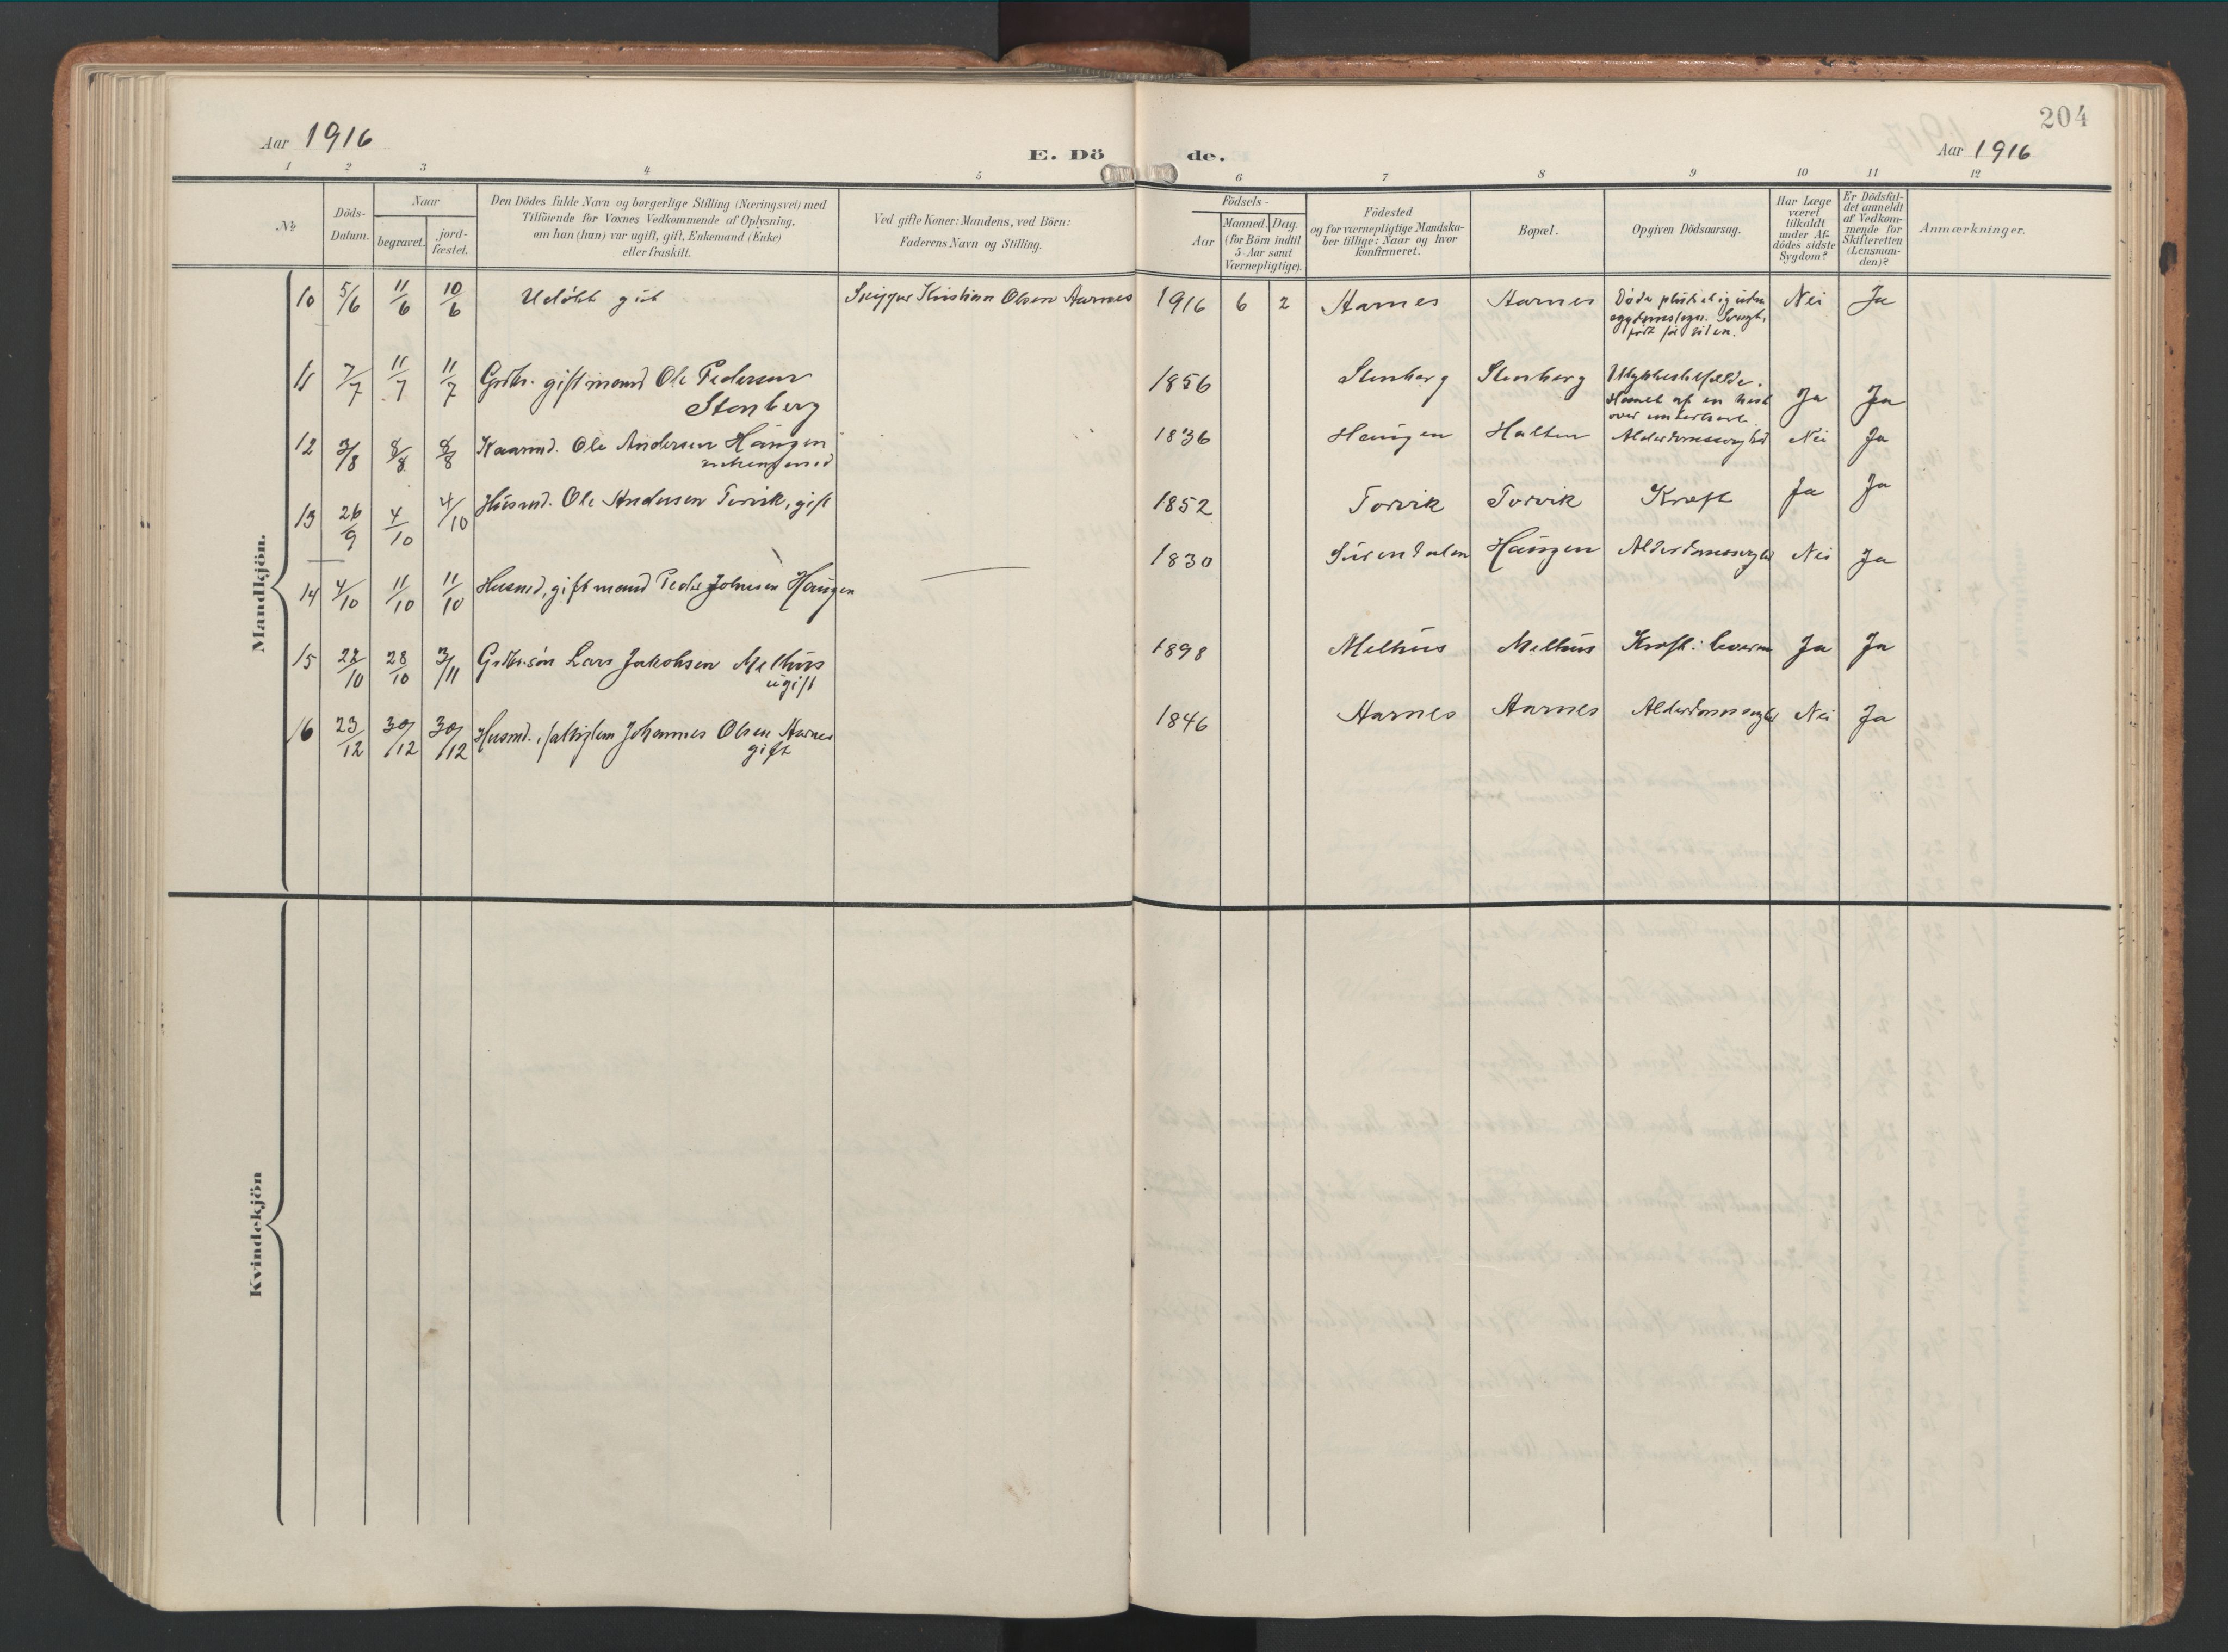 204
Aar 1916
E. Dö
de.
Aar 1916
1 2 3 4 5 6 7 8 9 10 11 12
№
Döds-
Datum.
Naar
begravet.
jord-
fæstet.
Den Dödes fulde Navn og borgerlige Stilling (Næringsvei) med
Tilföiende for Voxnes Vedkommende af Oplysning,
om han (hun) var ugift, gift, Enkemand (Enke)
eller fraskilt.
Ved gifte Koner: Mandens, ved Börn:
Faderens Navn og Stilling.
Födsels-
Aar
Maaned. Dag.
(for Börn indtil
5 Aar samt
Værnepligtige).
Födested
og for værnepligtige Mandska-
ber tillige: Naar og hvor
konfirmeret.
Bopæl.
Opgiven Dödsaarsag.
Har Læge
været
tilkaldt
under Af-
dödes sidste
Sygdom?
Er Dödsfal-
det anmeldt
af Vedkom-
mende for
Skifteretten
(Lensman-
den)?
Anmærkninger.
Mandkjön.
10 5/6 11/6 10/6 Udöbt gut Skipper Kristian Olsen Aarnes 1916 6 2 Aarnes Aarnes Döde pludselig uden Nei Ja
11 7/7 11/7 11/7 Grdbr. gift mand Ole Pedersen 1856 Stenberg Stenberg Ulykkestilfælde. Ja Ja
Stenberg
over
12 3/8 8/8 8/8 Kaarmd. Ole Andersen Haugen 1836 Haugen Halten Alderdomssvaghed Nei Ja
enkemand
13 26/9 4/10 4/10 Husmd. Ole Andersen Torvik, gift 1852 Torvik Torvik Kræft Ja Ja
14 4/10 11/10 11/10 Husmd, gift mand Peder Johnsen Haugen 1830 Surendalen Haugen Alderdomssvaghed Nei Ja
15 22/10 28/10 3/11 Grdbr.sön Lars Jakobsen Melhus 1898 Melhus Melhus Kræft i leveren Ja Ja
ugift
16 23/12 30/12 30/12 Husmd., fattiglem Johannes Olsen Aarnes 1846 Aarnes Aarnes Alderdomssvaghed Nei Ja
gift
Kvindekjön